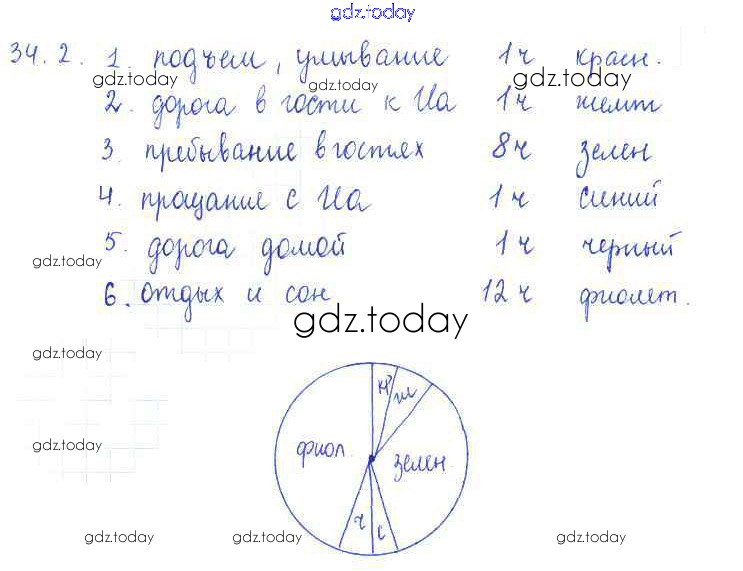 gdz.today
34.2. 1. подъем, умывание 1ч красн.
gdz.today gdz.today gdz.today
2. дорога в гости к Иа 1ч желт
3. пребывание в гостях 8ч зелен
4. прощание с Иа 1ч синий
5. дорога домой 1ч черный
gdz.today
6. отдых и сон 12ч фиолет.
gdz.today
gdz.today
кр ж
gdz.today
фиол. зелен.
ч с
gdz.today gdz.today gdz.today gdz.today